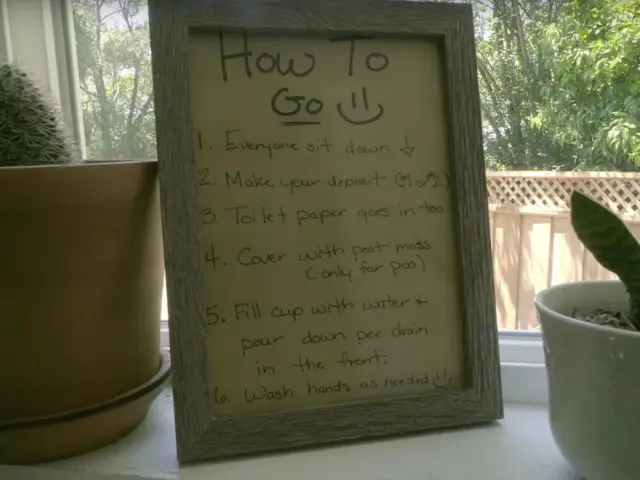 How To
Go
1. Everyone sit down
2. Make your deposit (#1 or #2)
3. Toilet paper goes in too
4. Cover with peat moss
(only for poo)
5. Fill cup with water +
pour down pee drain
in the front.
6. Wash hands as needed